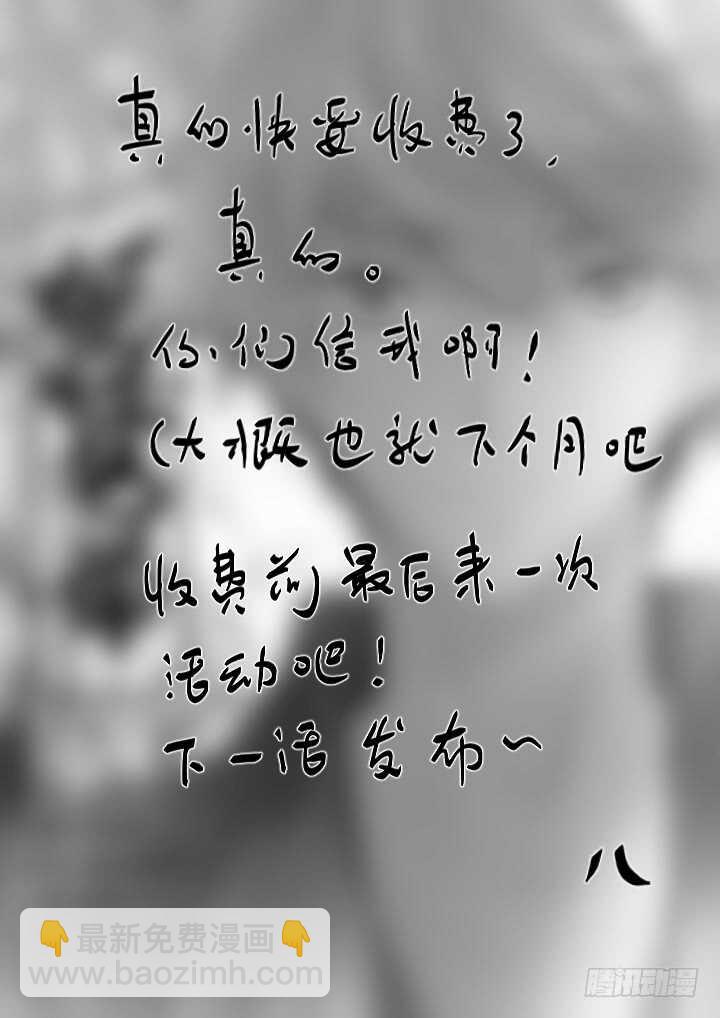 真的快要收费了，
真的。
你们信我啊！
（大概也就下个月吧
收费前最后来一次
活动吧！
下一话发布~
八
👇最新免费漫画👇
www.baozimh.com
腾讯动漫